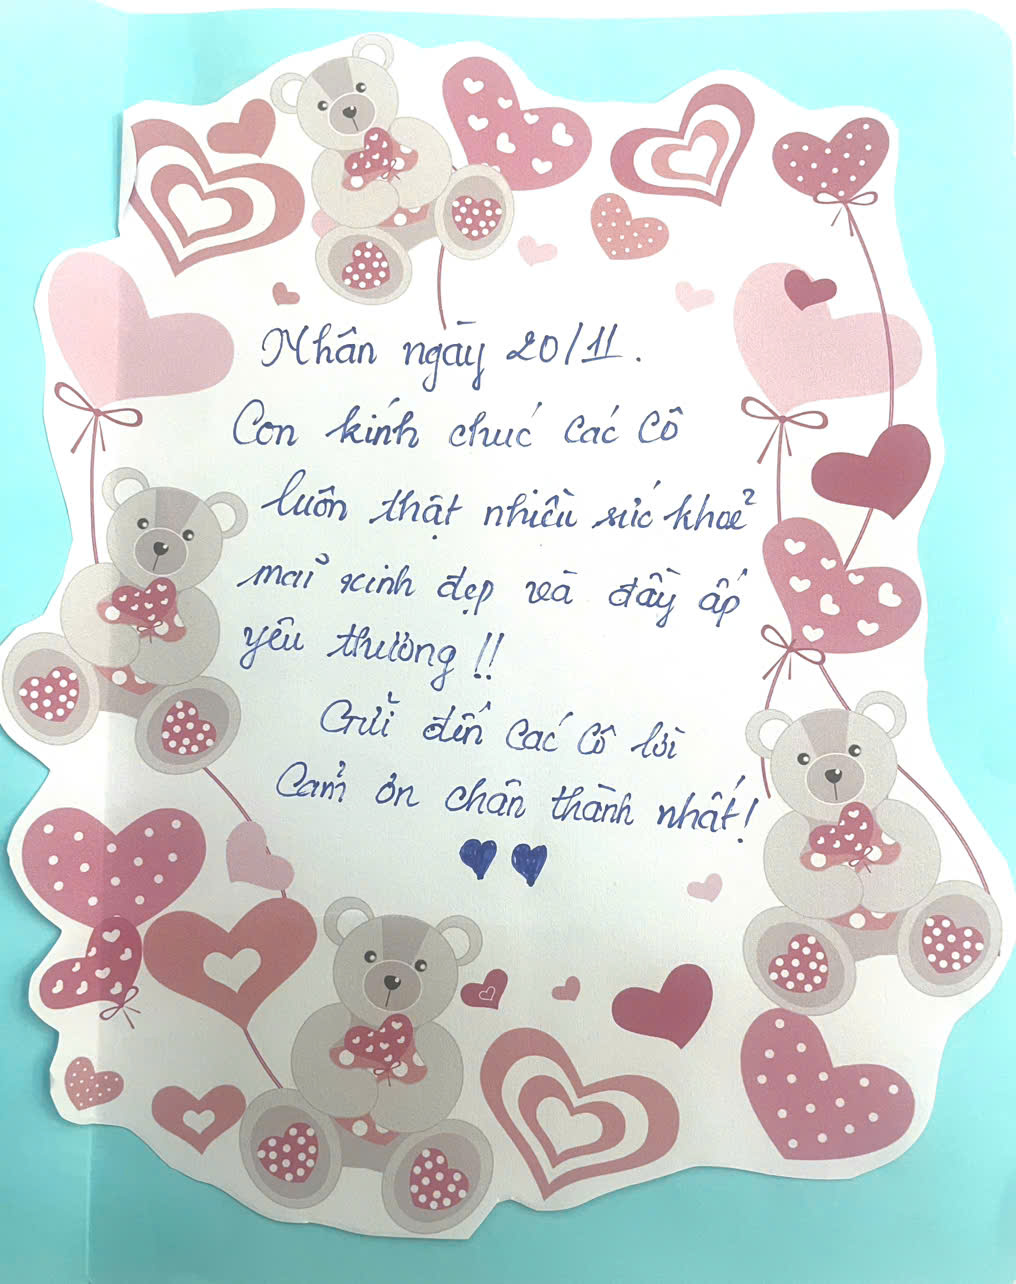 Nhân ngày 20/11.
Con kính chúc các cô
luôn thật nhiều sức khoẻ
mãi xinh đẹp và đầy ắp
yêu thương!!
Gửi đến các cô lời
cảm ơn chân thành nhất!